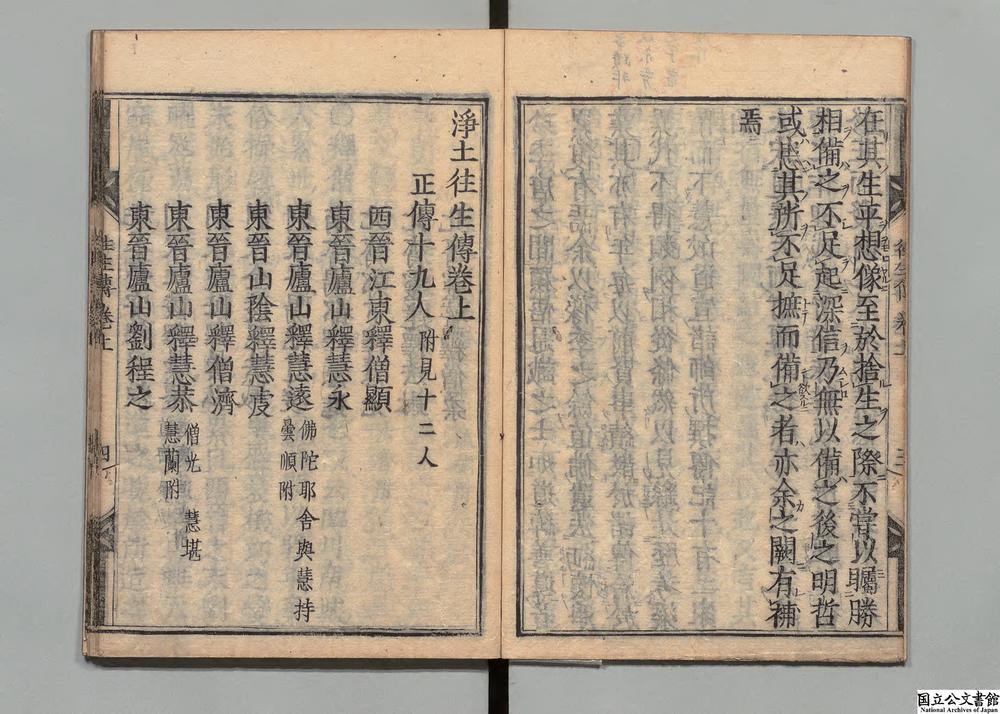 在其生平想像至於捨生之際不嘗以矚勝
相備之不足起深信乃無以備之後之明哲
或恚其所不足撫而備之者亦余之闕有補
焉
淨土往生傳卷上
正傳十九人 附見十二人
西晉江東釋僧顯
東晉廬山釋慧永
東晉廬山釋慧遠 佛陀耶舍與慧持
曇順附
東晉山陰釋慧虔
東晉廬山釋僧濟
東晉廬山釋慧恭 僧光 慧堪
慧蘭附
東晉廬山劉程之
往生傳卷上
四
国立公文書館
National Archives of Japan